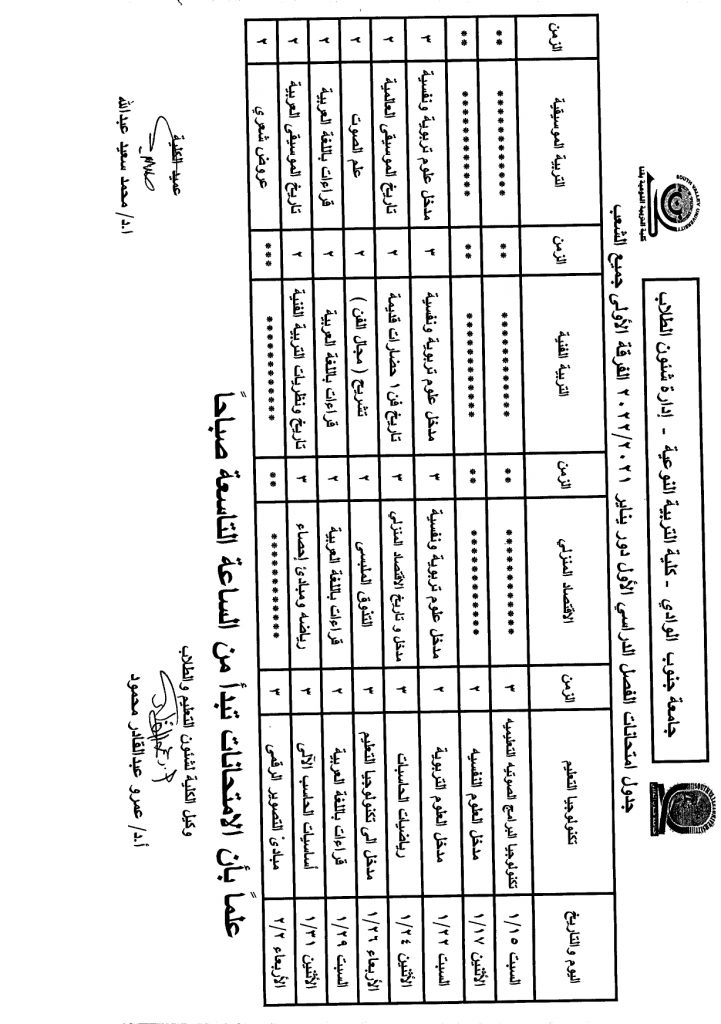 SOUTH VALLEY UNIVERSITY
كلية التربية النوعية بقنا
جامعة جنوب الوادي - كلية التربية النوعية - إدارة شئون الطلاب
جدول امتحانات الفصل الدراسي الأول دور يناير ٢٠٢٢/٢٠٢١ الفرقة الأولى جميع الشعب
اليوم والتاريخ تكنولوجيا التعليم الزمن الاقتصاد المنزلي الزمن التربية الفنية الزمن التربية الموسيقية الزمن
السبت ١/١٥ تكنولوجيا البرامج الصوتيه التعليميه ٣ ************ ** ************ ** ************ **
الأثنين ١/١٧ مدخل العلوم النفسيه ٢ ************ ** ************ ** ************ **
السبت ١/٢٢ مدخل العلوم التربوية ٢ مدخل علوم تربوية ونفسية ٣ مدخل علوم تربوية ونفسية ٣ مدخل علوم تربوية ونفسية ٣
الأثنين ١/٢٤ رياضيات الحاسبات ٣ مدخل و تاريخ الاقتصاد المنزلي ٣ تاريخ فن ١ حضارات قديمة ٢ تاريخ الموسيقى العالمية ٢
الأربعاء ١/٢٦ مدخل الى تكنولوجيا التعليم ٣ التذوق الملبسى ٢ تشريح ( مجال الفن ) ٢ علم الصوت ٢
السبت ١/٢٩ قراءات باللغة العربية ٢ قراءات باللغة العربية ٢ قراءات باللغة العربية ٢ قراءات باللغة العربية ٢
الأثنين ١/٣١ أساسيات الحاسب الآلى ٣ رياضه ومبادئ إحصاء ٣ تاريخ ونظريات التربية الفنية ٢ تاريخ الموسيقى العربية ٢
الأربعاء ٢/٢ مبادئ التصوير الرقمى ٣ ************ ** ************ *** عروض شعري ٢
علماً بأن الامتحانات تبدأ من الساعة التاسعة صباحاً
وكيل الكلية لشئون التعليم والطلاب
أ.د/ عمرو عبدالقادر محمود
عميد الكلية
ا.د/ محمد سعيد عبدالله